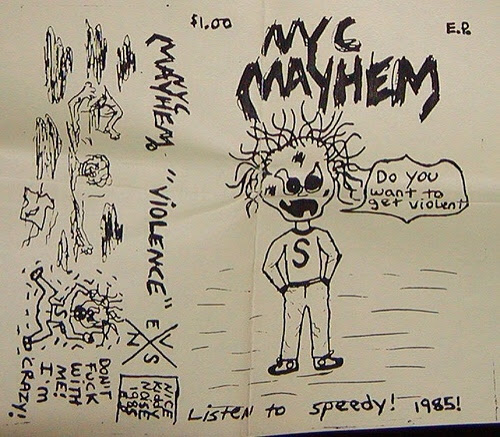 $1.00
E.P.
NYC
MAYHEM
Do you
want to
get violent
S
Listen to speedy! 1985!
NYC
MAYHEM
"VIOLENCE" E.
NYSV
S
DON'T
FUCK
WITH
ME!
I'M
CRAZY!
NICE
KIDDY
NOISE
1985